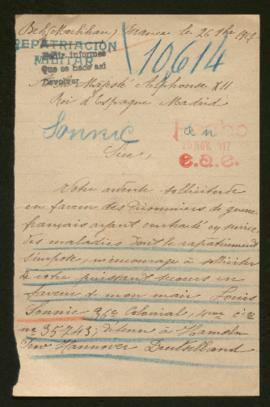 Belz (Morbihan) France le 26 8bre 1917
REPATRIACIÓN
MILITAR
Pedir informes
Que se hace así
Devolver
10614
A sa Majesté Alphonse XIII
Roi d'Espagne Madrid
Sonnic
Hecho
20 NOV. 917
e.a.e.
Sire,
Votre entente sollicitude
en faveur des prisonniers de guerre
français ayant contracté en
des maladies dont le rapatriement
s'impose, m'encourage à solliciter
de votre puissant secours en
faveur de mon mari Louis
Sonnic 3/c Colonial,
no 35743, détenu à Hameln
Hannover Deutschland